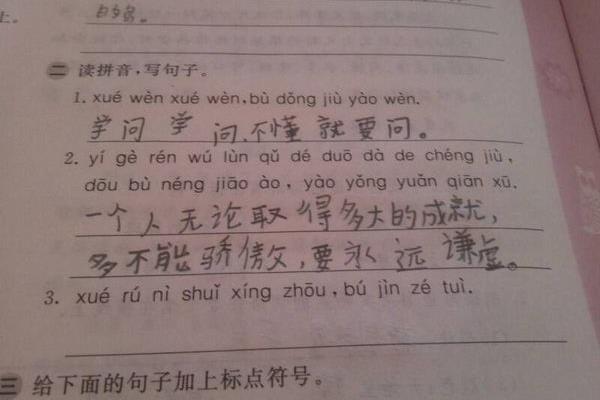 上。
二 读拼音,写句子。
1. xué wèn xué wèn,bù dǒng jiù yào wèn.
学问学问,不懂就要问。
2. yí gè rén wú lùn qǔ dé duō dà de chéng jiù,
dōu bù néng jiāo ào, yào yǒng yuǎn qiān xū.
一个人无论取得多大的成就,
多不能骄傲,要永远谦虚。
3. xué rú nì shuǐ xíng zhōu,bú jìn zé tuì.
三 给下面的句子加上标点符号。